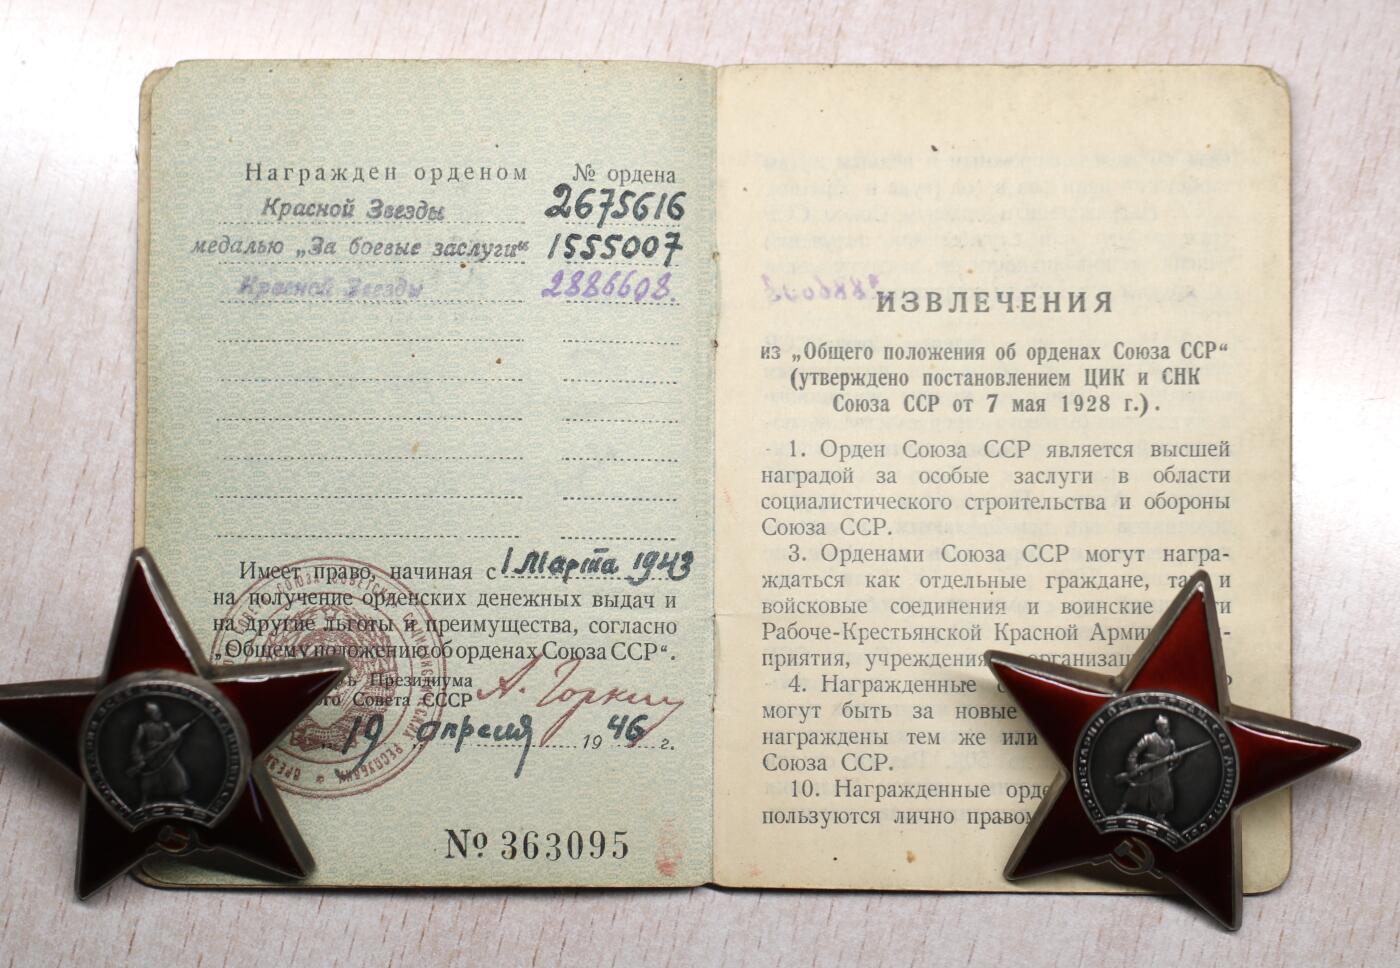 Награжден орденом № ордена
Красной Звезды 2675616
медалью „За боевые заслуги“ 1555007
Красной Звезды 2886608.
Имеет право, начиная с 1 Марта 1943
на получение орденских денежных выдач и
на другие льготы и преимущества, согласно
„Общему положению об орденах Союза ССР“.
Президиума
Совета СССР А. Горкин
19 апреля 1946 г.
№ 363095
ИЗВЛЕЧЕНИЯ
из „Общего положения об орденах Союза ССР“
(утверждено постановлением ЦИК и СНК
Союза ССР от 7 мая 1928 г.).
1. Орден Союза ССР является высшей
наградой за особые заслуги в области
социалистического строительства и обороны
Союза ССР.
3. Орденами Союза ССР могут награ-
ждаться как отдельные граждане, так и
войсковые соединения и воинские
Рабоче-Крестьянской Красной Армии
приятия, учреждения
4. Награжденные
могут быть за новые
награждены тем же или
Союза ССР.
10. Награжденные
пользуются лично правом
СССР